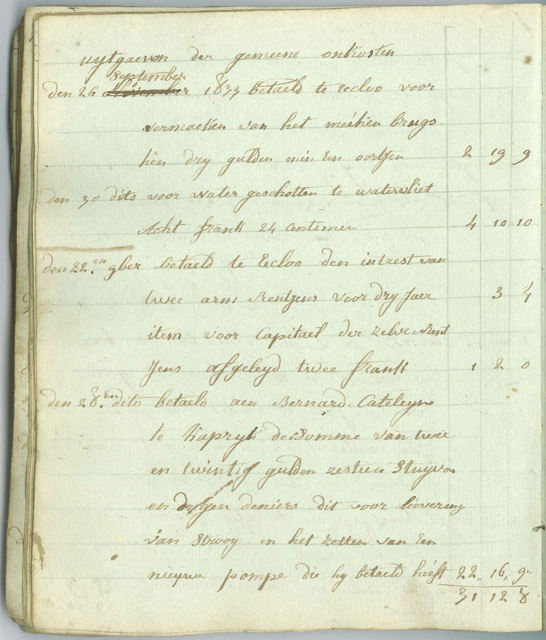 uytgaeven der gemeene onkosten
September
den 26 November 1835 betaelt te eecloo voor
vermaeken van het meikien brugs
kien dry gulden min Een oortjen 2 19 9
den 30 dito voor water geschotten te watervliet
Acht frank 24 Centimen 4 10 10
den 22.en 9ber betaeld te Eecloo den intrest van
twee arm Rentjens voor dry Jaer 3
item voor Capitael der zelve Rent
Jens afgeleyd twee frank 1 2 0
den 28 dito betaeld aen Bernard Cateleyn
te Kapryk de Somme van twee
en twintig gulden zestien Stuyvers
en deniers dit voor levering
van en het zetten van Een
nieuwe pompe die hy betaeld heeft 22 16 9
31 12 8